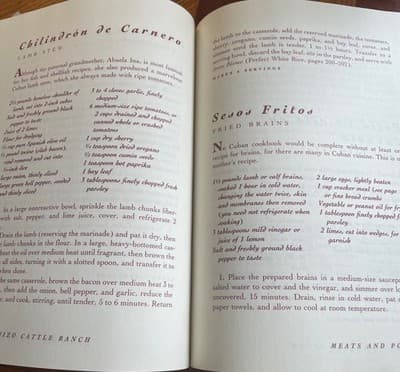 Chilindrón de Carnero
LAMB STEW
Although my paternal grandmother, Abuela Ina, is most famous
for her fish and shellfish recipes, she also produced a marvelous
Cuban lamb stew, which she always made with ripe tomatoes.
2½ pounds boneless shoulder of
lamb cut into 2-inch cubes
Salt and freshly ground black
pepper to taste
Juice of 2 limes
Flour for dredging
¼ cup pure Spanish olive oil
¼ pound bacon (slab bacon),
rind removed and cut into
½-inch dice
1 large onion, thinly sliced
1 large green bell pepper, seeded
and thinly sliced
3 to 4 cloves garlic, finely
chopped
6 medium-size ripe tomatoes, or
2 cups drained and chopped
canned whole or crushed
tomatoes
½ cup dry sherry
½ teaspoon dried oregano
½ teaspoon cumin seeds
1 teaspoon hot paprika
1 bay leaf
2 tablespoons finely chopped fresh
parsley
In a large nonreactive bowl, sprinkle the lamb chunks liber-
with salt, pepper, and lime juice, cover, and refrigerate 2
Drain the lamb (reserving the marinade) and pat it dry, then
lamb chunks in the flour. In a large, heavy-bottomed cas-
the oil over medium heat until fragrant, then brown the
all sides, turning it with a slotted spoon, and transfer it to
when done.
same casserole, brown the bacon over medium heat 5 to
then add the onion, bell pepper, and garlic, reduce the
and cook, stirring, until tender, 5 to 6 minutes. Return
CATTLE RANCH
the lamb to the casserole, add the reserved marinade, the tomatoes,
sherry, oregano, cumin seeds, paprika, and bay leaf, cover, and
simmer until the lamb is tender, 1 to 1½ hours. Transfer to a
serving bowl, discard the bay leaf, stir in the parsley, and serve with
Arroz Blanco (Perfect White Rice, pages
MAKES 6 SERVINGS
Sesos Fritos
FRIED BRAINS
No Cuban cookbook would be complete without at least one
recipe for brains, for there are many in Cuban cuisine. This is
mother's recipe.
1½ pounds lamb or calf brains,
soaked 1 hour in cold water,
changing the water twice, skin
and membranes then removed
(you need not refrigerate when
soaking)
3 tablespoons mild vinegar or
juice of 1 lemon
Salt and freshly ground black
pepper to taste
2 large eggs, lightly beaten
1 cup cracker meal (see page
or fine bread crumbs
Vegetable or peanut oil for
1 tablespoon finely chopped
parsley
2 limes, cut into wedges, for
garnish
1. Place the prepared brains in a medium-size saucepan
salted water to cover and the vinegar, and simmer over
uncovered, 15 minutes. Drain, rinse in cold water, pat
paper towels, and allow to cool at room temperature.
MEATS AND